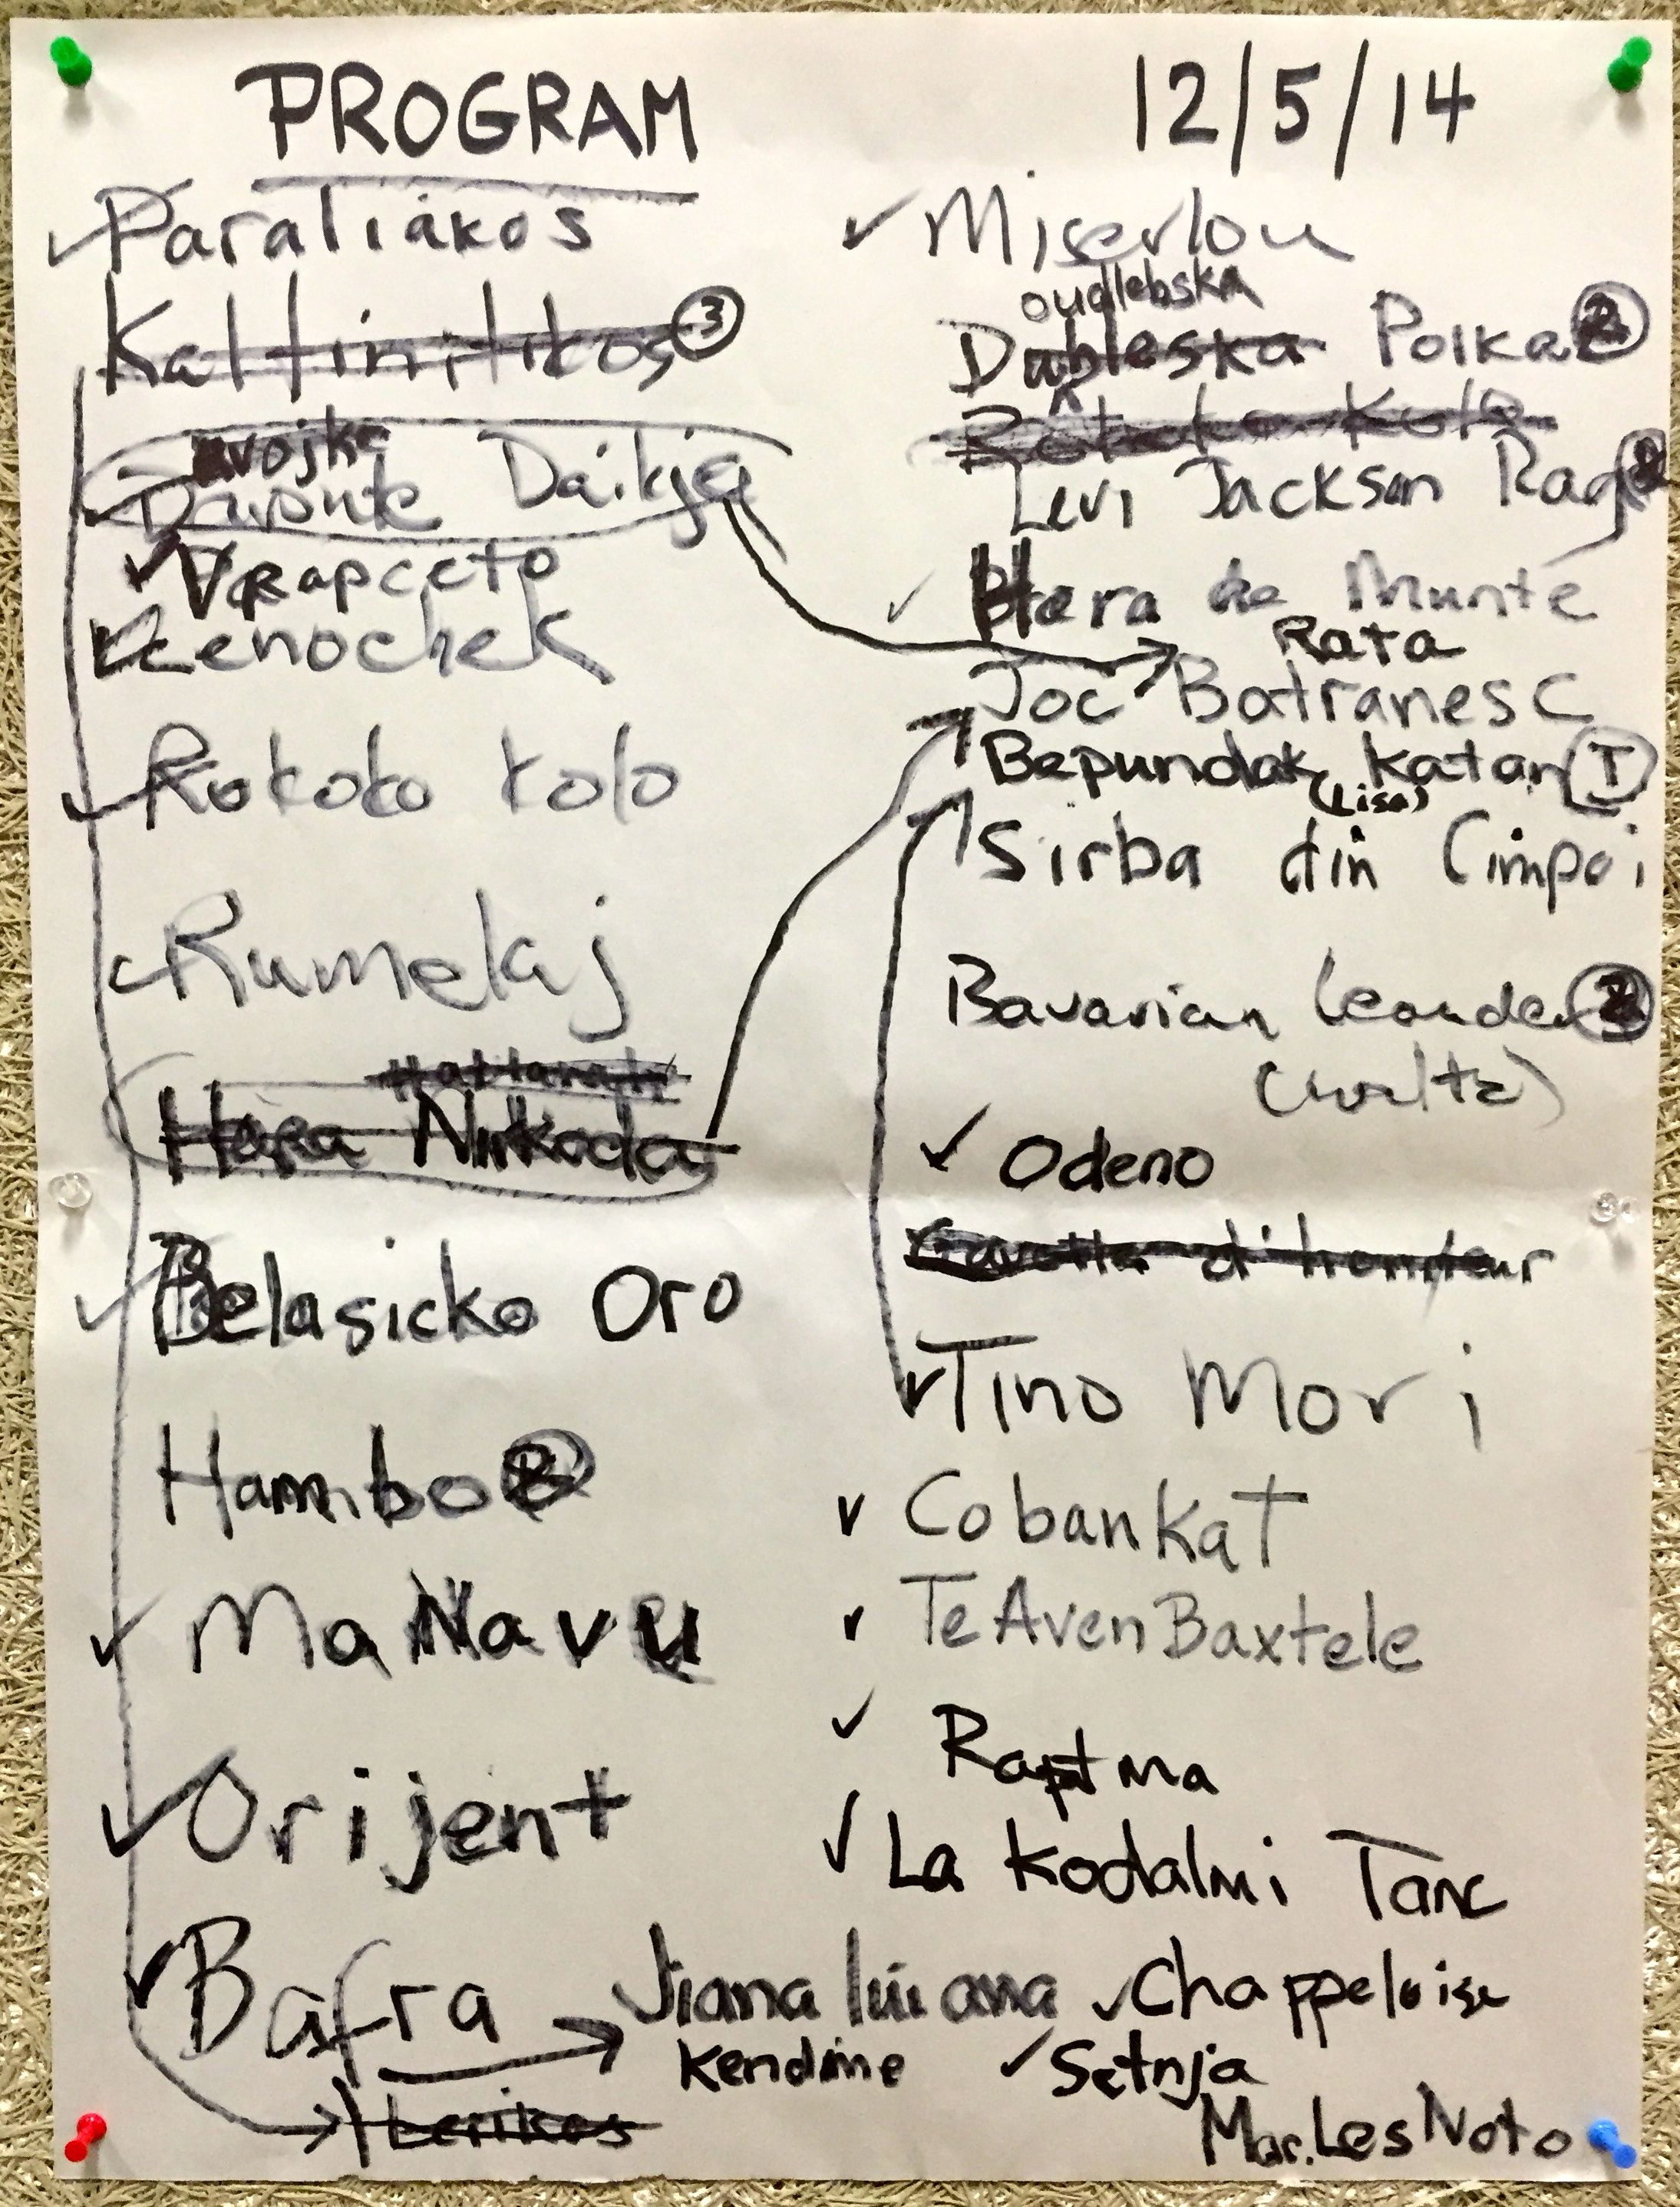 PROGRAM 12/5/14
Paraliakos
Kalfinitikos 3
Dvojke
Daronte Daikja
Vrapceto
Lenochek
Rokoko Kolo
Rumelaj
Hora Nirkoda
Belasicko Oro
Hambo
Ma Navu
Orijent
Bafra
Miserlou
oudlebska
Dableska Polka 2
Rokoko Kolo
Levi Jackson Rag
Hora de Munte
Rata
Joc Batranesc
Bepundak Katan T
(Lisa)
Sirba din Cimpoi
Bavarian Leander
(waltz)
Odeno
Gavotte d'honneur
Tino Mori
Cobankat
Te Aven Baxtele
Raptma
La Kodalmi Tanc
Chappeloise
Kendime Setnja
Mar. Les Noto